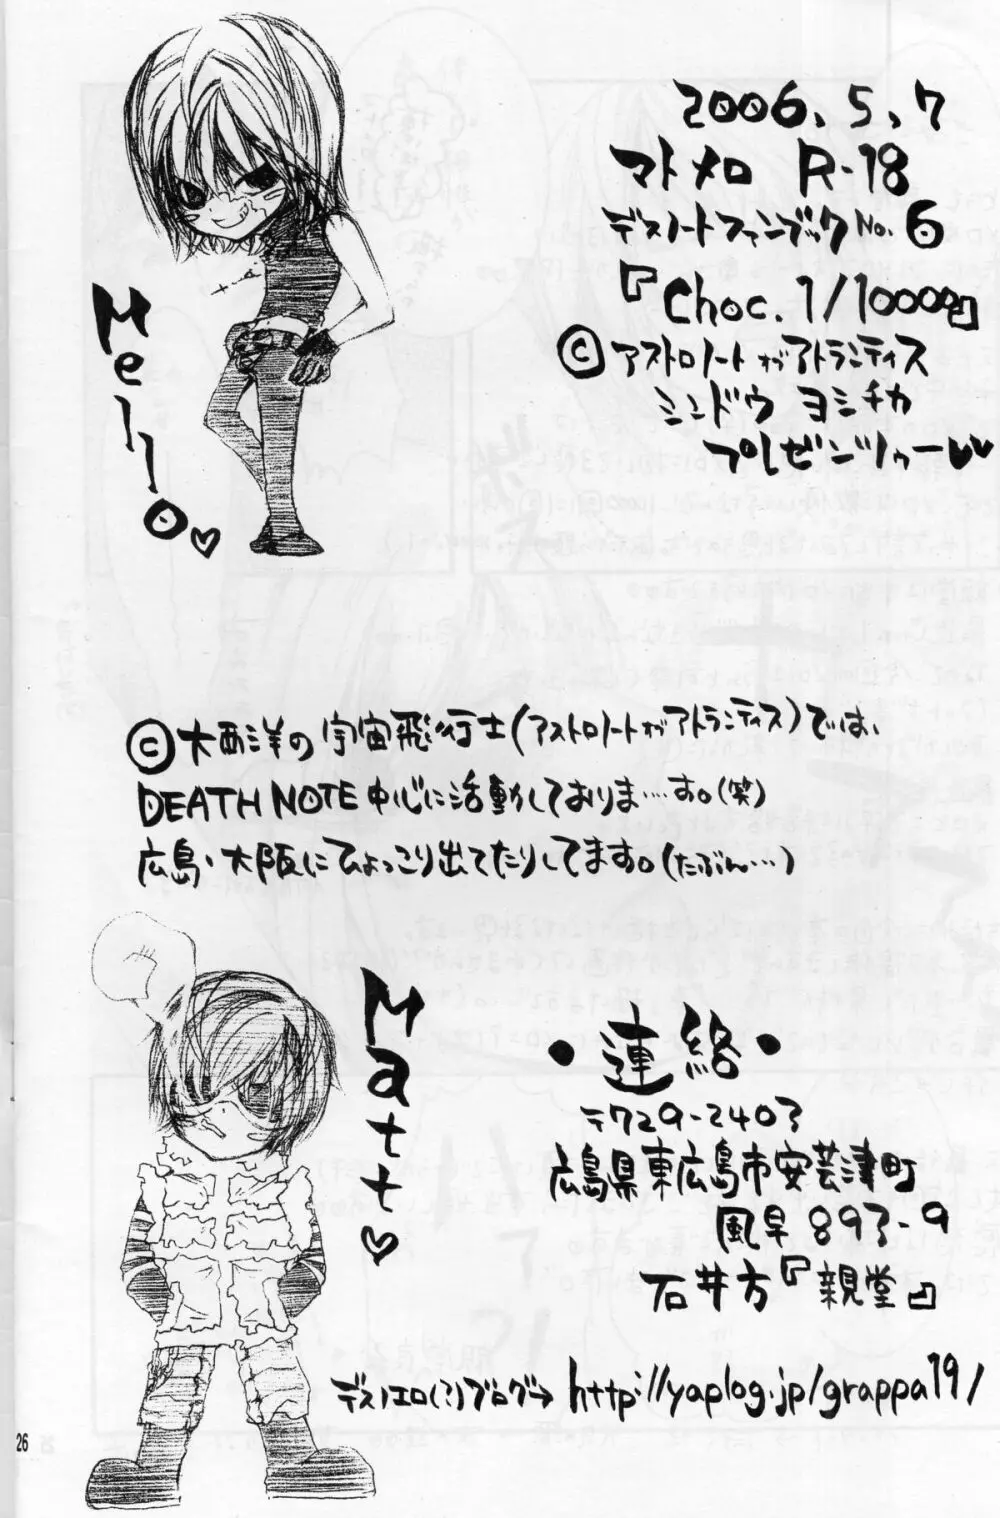 2006.5.7
マトメロ R-18
デスノートファンブックNo.6
『Choc.1/10000』
©アストロノートオブアトランティス
シンドウ ヨシチカ
プレゼンツゥー♥♥
Mello♡
©大西洋の宇宙飛行士(アストロノートオブアトランティス)では、
DEATH NOTE中心に活動しておりま…す。(笑)
広島・大阪にひょっこり出てたりしてます。(たぶん…)
Matt♡
・連絡・
〒729-2403
広島県東広島市安芸津町
風早893-9
石井方『親堂』
デスノエロ(?)ブログ→ http://yaplog.jp/grappa19/
26